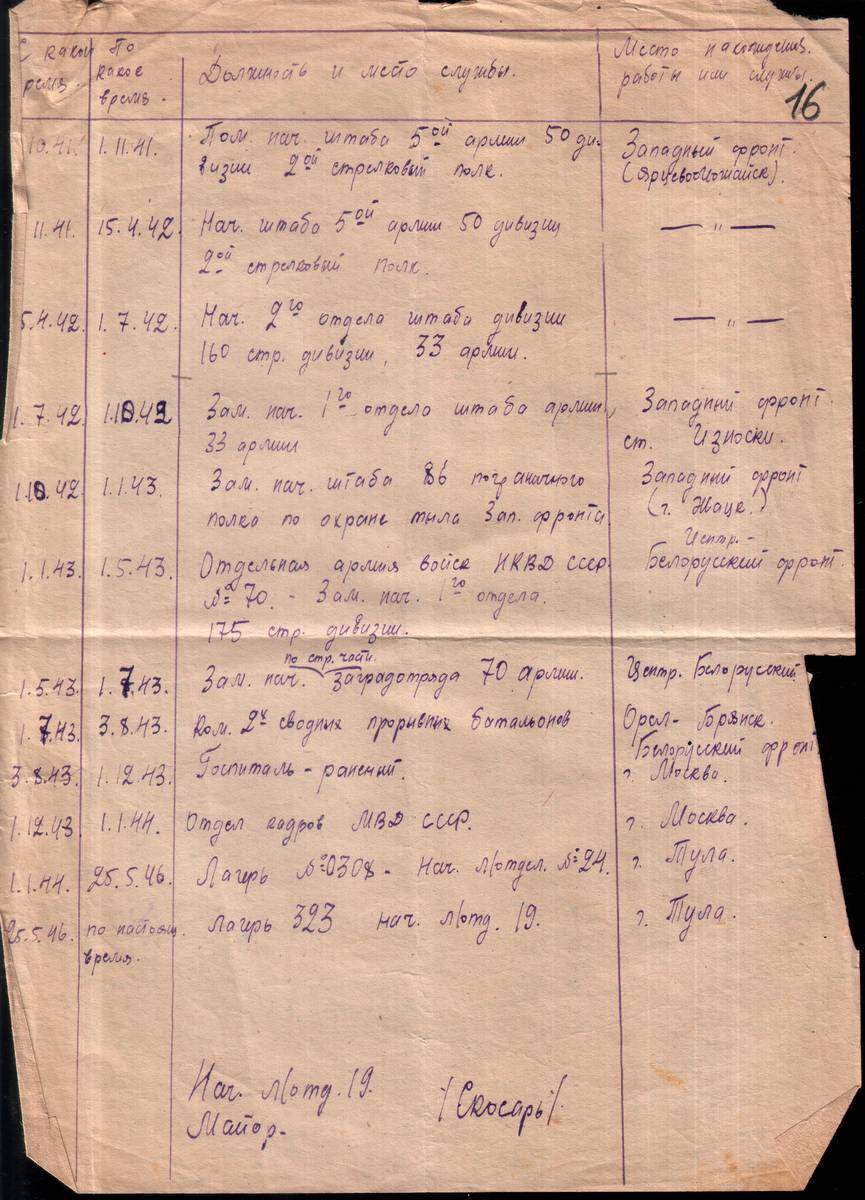 С какого По Должность и место службы. Место нахождения
время. какое работы или службы.
время. 16
10.41. 1.11.41. Пом. нач. штаба 5ой армии 50 ди- Западный фронт.
визии 2ой стрелковый полк. (Ярцево-Можайск).
11.41. 15.4.42. Нач. штаба 5ой армии 50 дивизии — " —
2ой стрелковый полк.
5.4.42. 1.7.42. Нач. 2го отдела штаба дивизии — " —
160 стр. дивизии, 33 армии.
1.7.42. 1.10.42 Зам. нач. 1го отдела штаба армии, Западный фронт.
33 армии ст. Износки.
1.10.42. 1.1.43. Зам. нач. штаба 86 пограничного Западный фронт
полка по охране тыла Зап. фронта (г. Жацк.)
Центр.-
1.1.43. 1.5.43. Отдельная армия войск НКВД СССР. Белорусский фронт.
№ 70. - Зам. нач. 1го отдела.
175 стр. дивизии.
по стр. части.
1.5.43. 1.7.43. Зам. нач. заградотряда 70 армии. Центр. Белорусский
1.7.43. 3.8.43. Ком. 2х сводных прорывных батальонов Орел-Брянск.
Белорусский фронт
3.8.43. 1.12.43. Госпиталь - раненый. г. Москва.
1.12.43 1.1.44. Отдел кадров МВД СССР. г. Москва.
1.1.44. 25.5.46. Лагерь №0308- Нач. л/отдел. №24. г. Тула.
25.5.46. по настоящ. Лагерь 323 нач. л/отд. 19. г. Тула.
время.
Нач. л/отд. 19. /Скосарь/.
Майор-